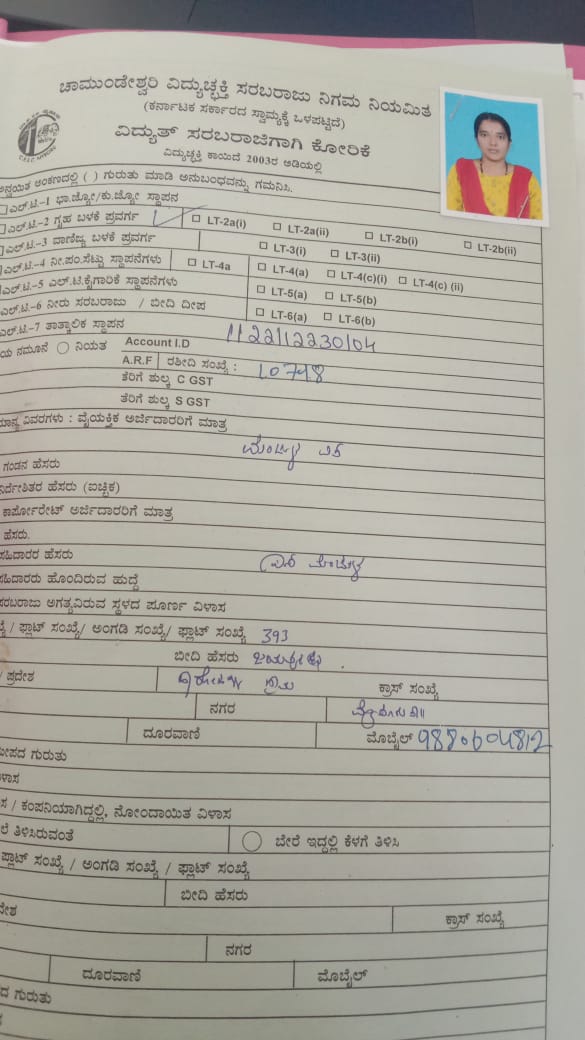 ಚಾಮುಂಡೇಶ್ವರಿ ವಿದ್ಯುಚ್ಛಕ್ತಿ ಸರಬರಾಜು ನಿಗಮ ನಿಯಮಿತ
(ಕರ್ನಾಟಕ ಸರ್ಕಾರದ ಸ್ವಾಮ್ಯಕ್ಕೆ ಒಳಪಟ್ಟಿದೆ)
ವಿದ್ಯುತ್ ಸರಬರಾಜಿಗಾಗಿ ಕೋರಿಕೆ
ವಿದ್ಯುಚ್ಛಕ್ತಿ ಕಾಯಿದೆ 2003ರ ಅಡಿಯಲ್ಲಿ
ಅಂಕಣದಲ್ಲಿ ( ) ಗುರುತು ಮಾಡಿ ಅನುಬಂಧವನ್ನು ಗಮನಿಸಿ.
ಎಲ್.ಟಿ.-1 ಭಾ.ಜ್ಯೋ/ಕು.ಜ್ಯೋ ಸ್ಥಾಪನ
ಎಲ್.ಟಿ.-2 ಗೃಹ ಬಳಕೆ ಪ್ರವರ್ಗ LT-2a(i) LT-2a(ii) LT-2b(i) LT-2b(ii)
ಎಲ್.ಟಿ.-3 ವಾಣಿಜ್ಯ ಬಳಕೆ ಪ್ರವರ್ಗ LT-3(i) LT-3(ii)
ಎಲ್.ಟಿ.-4 ನೀ.ಪಂ.ಸೆಟ್ಟು ಸ್ಥಾಪನೆಗಳು LT-4a LT-4(a) LT-4(c)(i) LT-4(c) (ii)
ಎಲ್.ಟಿ.-5 ಎಲ್.ಟಿ.ಕೈಗಾರಿಕೆ ಸ್ಥಾಪನೆಗಳು LT-5(a) LT-5(b)
ಎಲ್.ಟಿ.-6 ನೀರು ಸರಬರಾಜು / ಬೀದಿ ದೀಪ LT-6(a) LT-6(b)
ಎಲ್.ಟಿ.-7 ತಾತ್ಕಾಲಿಕ ಸ್ಥಾಪನ
ನಮೂನೆ ನಿಯತ Account I.D 1122112230104
A.R.F ರಶೀದಿ ಸಂಖ್ಯೆ : 10748
ತೆರಿಗೆ ಶುಲ್ಕ C GST
ತೆರಿಗೆ ಶುಲ್ಕ S GST
ವಿವರಗಳು : ವೈಯಕ್ತಿಕ ಅರ್ಜಿದಾರರಿಗೆ ಮಾತ್ರ
ಗಂಡನ ಹೆಸರು
ಹೆಸರು (ಐಚ್ಛಿಕ)
ಕಾರ್ಪೋರೇಟ್ ಅರ್ಜಿದಾರರಿಗೆ ಮಾತ್ರ
ಹೆಸರು.
ಸಹಿದಾರರ ಹೆಸರು
ಸಹಿದಾರರು ಹೊಂದಿರುವ ಹುದ್ದೆ
ಸರಬರಾಜು ಅಗತ್ಯವಿರುವ ಸ್ಥಳದ ಪೂರ್ಣ ವಿಳಾಸ
/ ಫ್ಲಾಟ್ ಸಂಖ್ಯೆ/ ಅಂಗಡಿ ಸಂಖ್ಯೆ/ ಫ್ಲಾಟ್ ಸಂಖ್ಯೆ 393
ಬೀದಿ ಹೆಸರು
/ ಪ್ರದೇಶ ಕ್ರಾಸ್ ಸಂಖ್ಯೆ
ನಗರ
ದೂರವಾಣಿ ಮೊಬೈಲ್ 9880604812
ಗುರುತು
/ ಕಂಪನಿಯಾಗಿದ್ದಲ್ಲಿ, ನೋಂದಾಯಿತ ವಿಳಾಸ
ತಿಳಿಸಿರುವಂತೆ ಬೇರೆ ಇದ್ದಲ್ಲಿ ಕೆಳಗೆ ತಿಳಿಸಿ
ಫ್ಲಾಟ್ ಸಂಖ್ಯೆ / ಅಂಗಡಿ ಸಂಖ್ಯೆ / ಫ್ಲಾಟ್ ಸಂಖ್ಯೆ
ಬೀದಿ ಹೆಸರು
ಕ್ರಾಸ್ ಸಂಖ್ಯೆ
ನಗರ
ದೂರವಾಣಿ ಮೊಬೈಲ್
ಗುರುತು